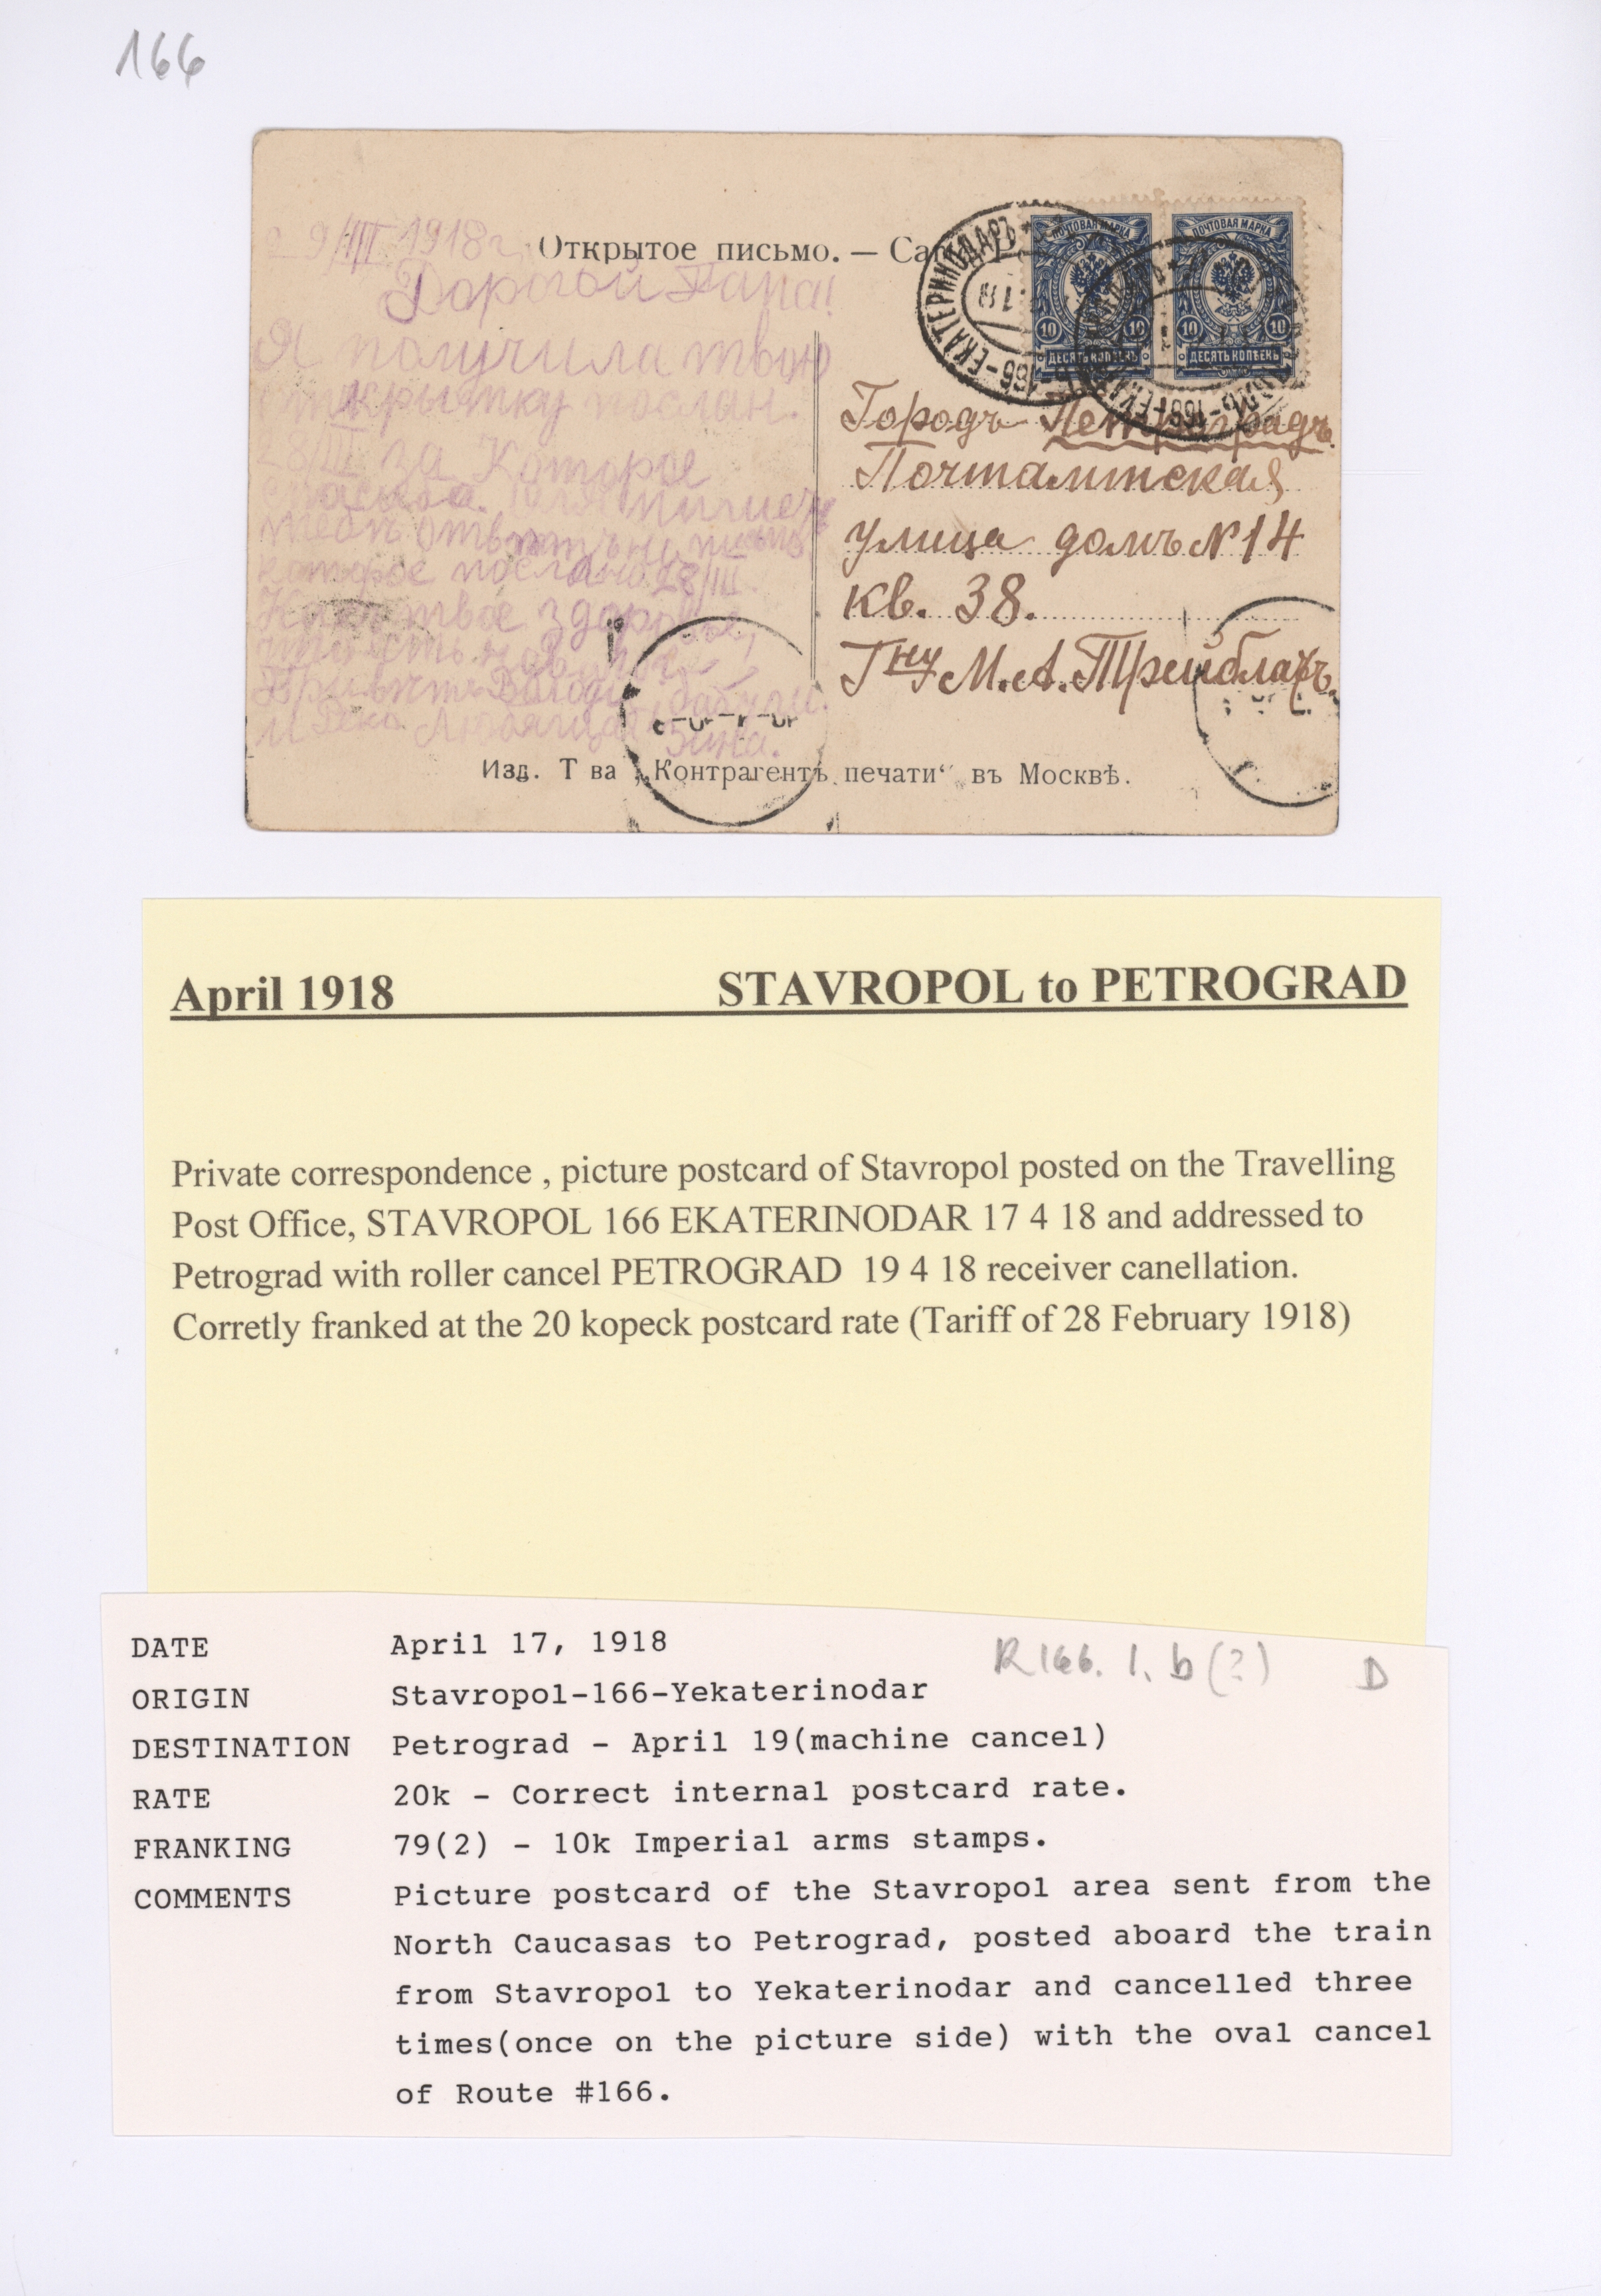 166
9/III 1918г.
Открытое письмо. — Ca
ПОЧТОВАЯ МАРКА ПОЧТОВАЯ МАРКА
10 10 10 10
ДЕСЯТЬ КОПѢЕКЪ ДЕСЯТЬ КОПѢЕКЪ
166-ЕКАТЕРИНОДАРЪ
Дорогой Папа!
Я получила твою
открытку послан.
28/III за которое
спасибо.
которое послано 28/III.
Как твое здоровье,
Любящая
Зина.
Городъ Петроградъ.
Почтамтская
улица домъ № 14
кв. 38.
Гну М. А.
Изд. Т ва „Контрагентъ печати“ въ Москвѣ.
April 1918 STAVROPOL to PETROGRAD
Private correspondence , picture postcard of Stavropol posted on the Travelling
Post Office, STAVROPOL 166 EKATERINODAR 17 4 18 and addressed to
Petrograd with roller cancel PETROGRAD 19 4 18 receiver canellation.
Corretly franked at the 20 kopeck postcard rate (Tariff of 28 February 1918)
R166. 1. b (?) D
DATE April 17, 1918
ORIGIN Stavropol-166-Yekaterinodar
DESTINATION Petrograd - April 19(machine cancel)
RATE 20k - Correct internal postcard rate.
FRANKING 79(2) - 10k Imperial arms stamps.
COMMENTS Picture postcard of the Stavropol area sent from the
North Caucasas to Petrograd, posted aboard the train
from Stavropol to Yekaterinodar and cancelled three
times(once on the picture side) with the oval cancel
of Route #166.